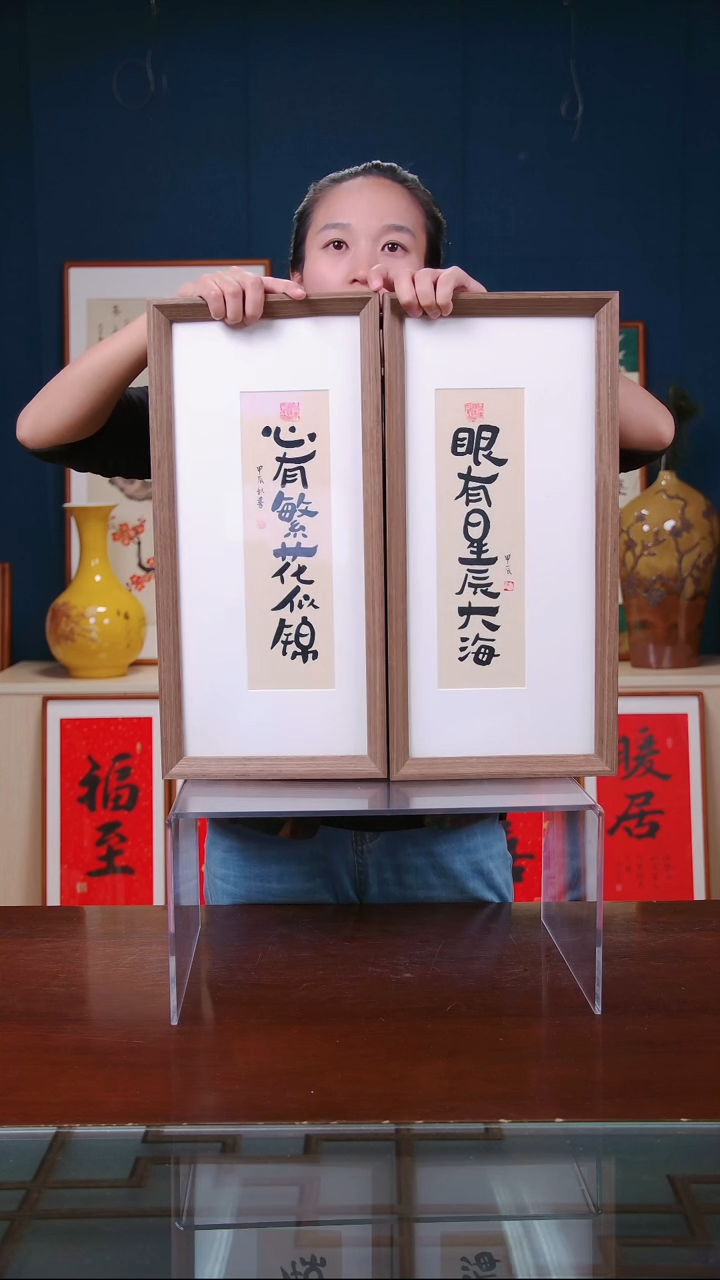 眼有星辰大海
甲辰
心有繁花似锦
甲辰秋书
福至
暖居
喜